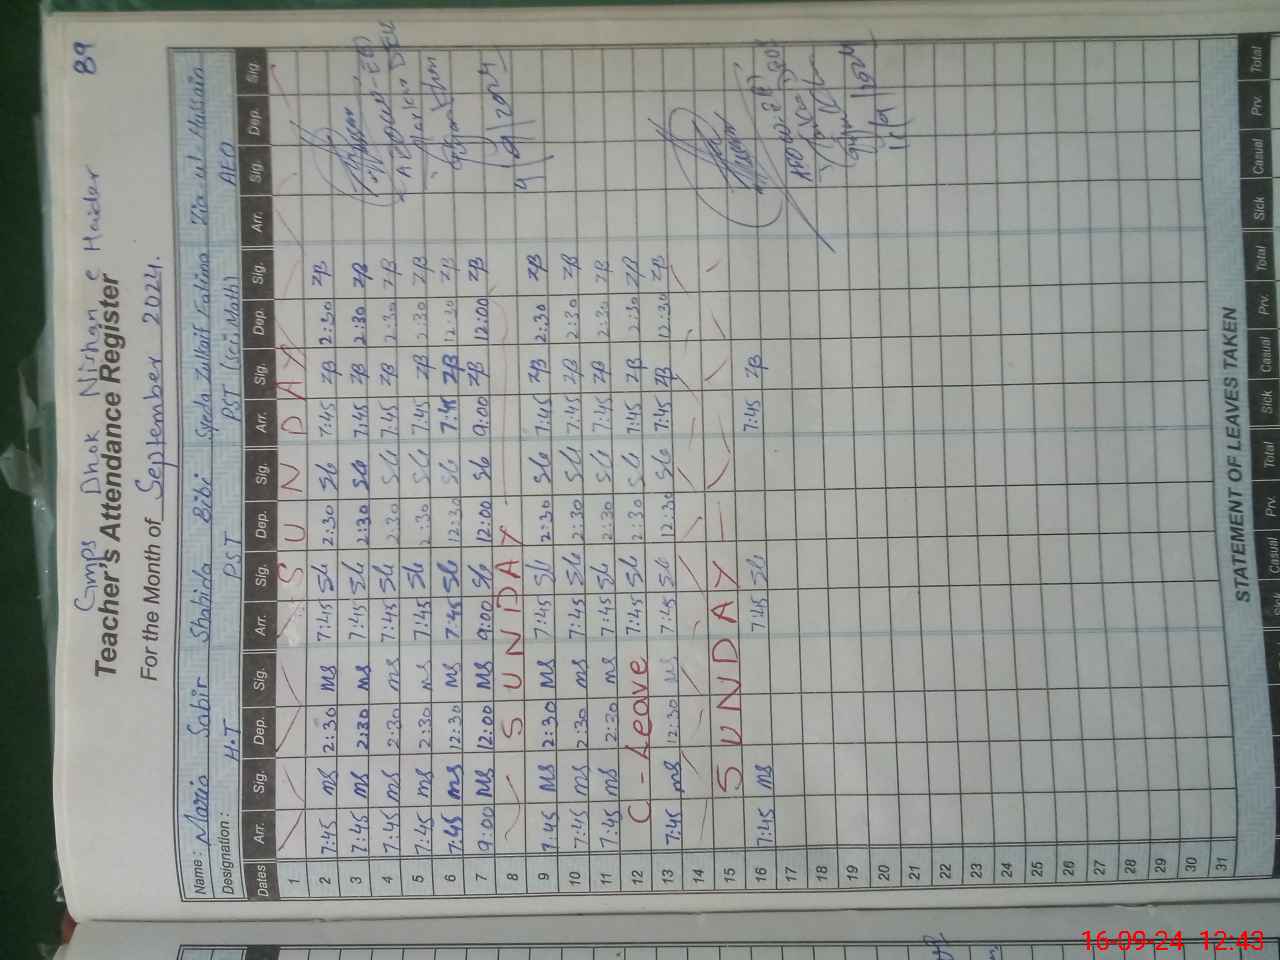 89
GMPS Dhok Nishan e Haider
Teacher's Attendance Register
For the Month of September 2024.
Name: Maria Sabir Shahida Bibi Syeda Zulkaif Fatima Zia ul Hussain
Designation: H.T PST PST (Sci Math) AEO
Dates Arr. Sig. Dep. Sig. Arr. Sig. Dep. Sig. Arr. Sig. Dep. Sig. Arr. Sig. Dep. Sig.
1 SUNDAY
2 7:45 MS 2:30 MS 7:45 Sb 2:30 Sb 7:45 ZB 2:30 ZB
3 7:45 MS 2:30 MS 7:45 Sb 2:30 Sb 7:45 ZB 2:30 ZB
4 7:45 MS 2:30 MS 7:45 Sb 2:30 Sb 7:45 ZB 2:30 ZB
5 7:45 MS 2:30 MS 7:45 Sb 2:30 Sb 7:45 ZB 2:30 ZB
6 7:45 MS 12:30 MS 7:45 Sb 12:30 Sb 7:45 ZB 12:30 ZB
7 9:00 MS 12:00 MS 9:00 Sb 12:00 Sb 9:00 ZB 12:00 ZB
8 SUNDAY
9 7:45 MS 2:30 MS 7:45 Sb 2:30 Sb 7:45 ZB 2:30 ZB
10 7:45 MS 2:30 MS 7:45 Sb 2:30 Sb 7:45 ZB 2:30 ZB
11 7:45 MS 2:30 MS 7:45 Sb 2:30 Sb 7:45 ZB 2:30 ZB
12 C-Leave 7:45 Sb 2:30 Sb 7:45 ZB 2:30 ZB
13 7:45 MS 12:30 MS 7:45 Sb 12:30 Sb 7:45 ZB 12:30 ZB
14
15 SUNDAY
16 7:45 MS 7:45 Sb 7:45 ZB
17
18
19
20
21
22
23
24
25
26
27
28
29
30
31
9/2024
STATEMENT OF LEAVES TAKEN
Sick Casual Prv. Total Sick Casual Prv. Total Sick Casual Prv. Total
16-09-24 12:43